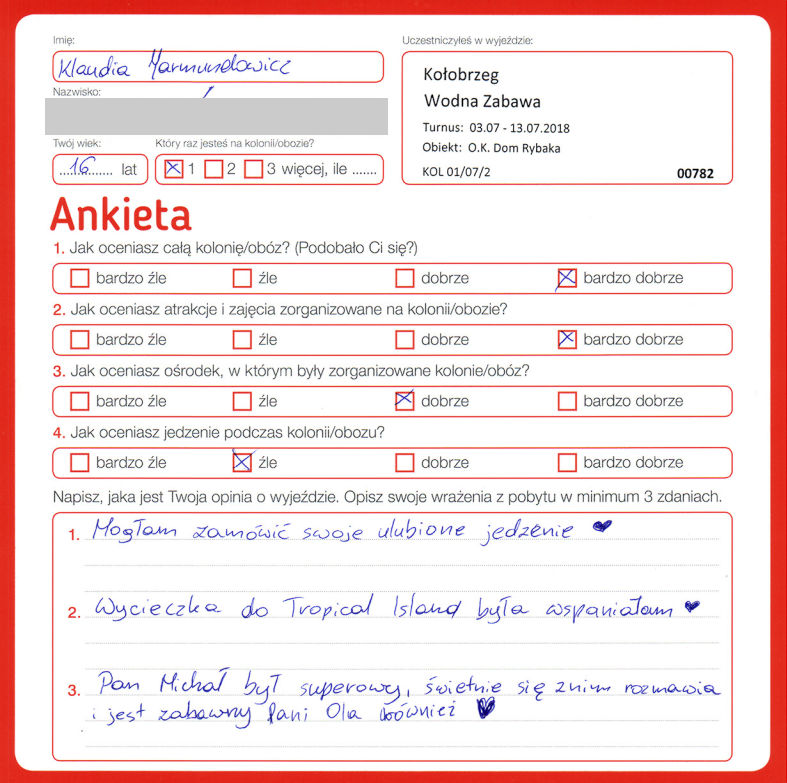 Imię:
Uczestniczyłeś w wyjeździe:
Klaudia Marmundowicz
Nazwisko:
Kołobrzeg
Wodna Zabawa
Turnus: 03.07 - 13.07.2018
Obiekt: O.K. Dom Rybaka
KOL 01/07/2
00782
Twój wiek:
Który raz jesteś na kolonii/obozie?
....16.... lat
1 2 3 więcej, ile .......
Ankieta
1. Jak oceniasz całą kolonię/obóz? (Podobało Ci się?)
bardzo źle źle dobrze bardzo dobrze
2. Jak oceniasz atrakcje i zajęcia zorganizowane na kolonii/obozie?
bardzo źle źle dobrze bardzo dobrze
3. Jak oceniasz ośrodek, w którym były zorganizowane kolonie/obóz?
bardzo źle źle dobrze bardzo dobrze
4. Jak oceniasz jedzenie podczas kolonii/obozu?
bardzo źle źle dobrze bardzo dobrze
Napisz, jaka jest Twoja opinia o wyjeździe. Opisz swoje wrażenia z pobytu w minimum 3 zdaniach.
1. Mogłam zamówić swoje ulubione jedzenie ♥
2. Wycieczka do Tropical Island była wspaniałam ♥
3. Pan Michał był superowy, świetnie się z nim rozmawia
i jest zabawny Pani Ola również ♥